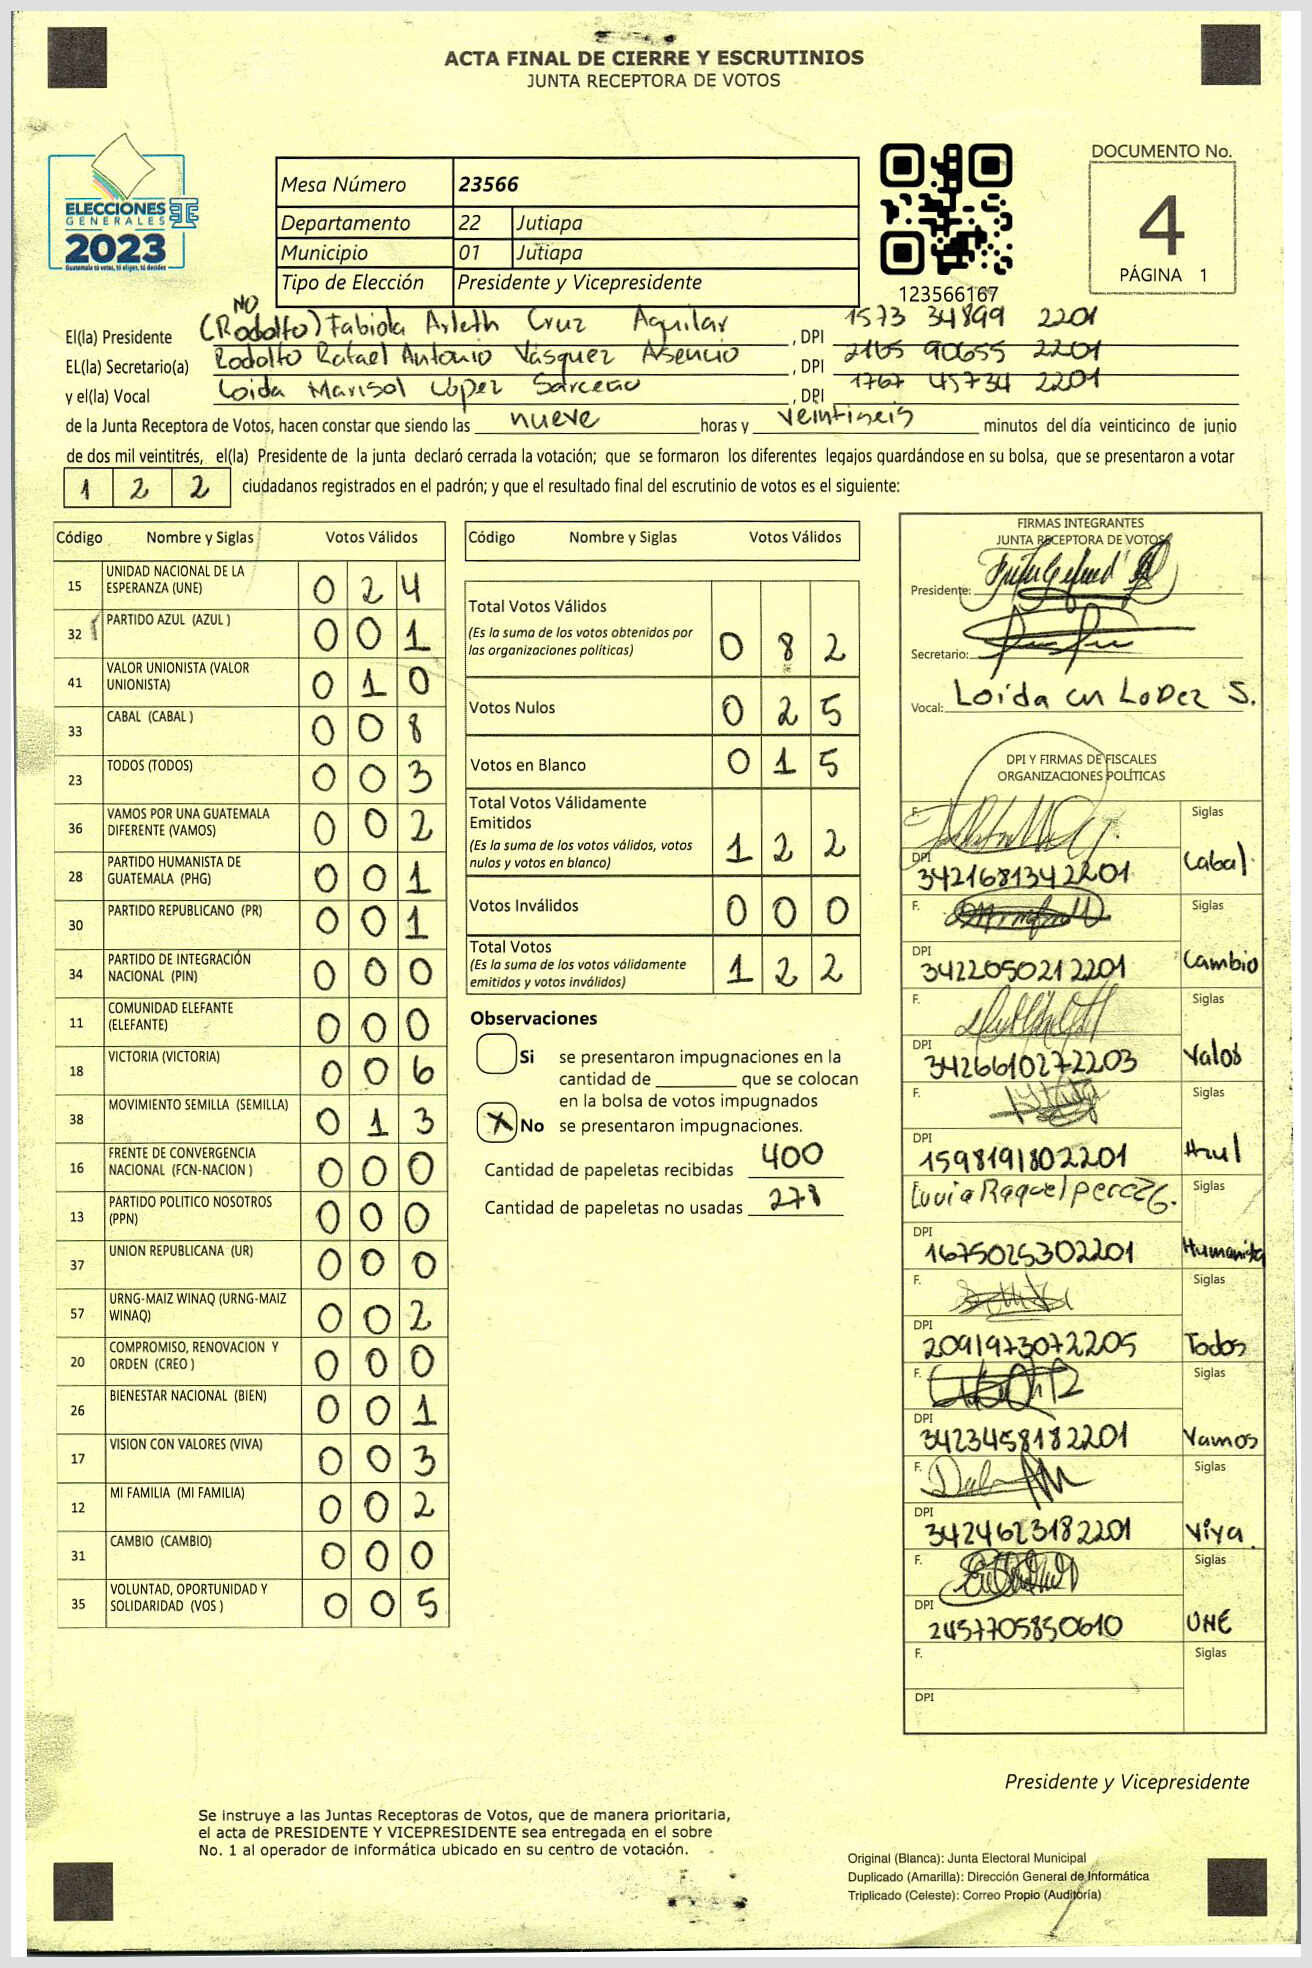 ACTA FINAL DE CIERRE Y ESCRUTINIOS
JUNTA RECEPTORA DE VOTOS
ELECCIONES
GENERALES
2023
Guatemala tú votas, tú eliges, tú decides
Mesa Número 23566
Departamento 22 Jutiapa
Municipio 01 Jutiapa
Tipo de Elección Presidente y Vicepresidente
123566167
DOCUMENTO No.
4
PÁGINA 1
NO
El(la) Presidente (Rodolfo) Fabiola Arleth Cruz Aguilar, DPI 1573 34899 2201
EL(la) Secretario(a) Rodolfo Rafael Antonio Vásquez Asencio, DPI 2165 90655 2201
y el(la) Vocal Loida Marisol López Sarceño, DPI 1767 45734 2201
de la Junta Receptora de Votos, hacen constar que siendo las nueve horas y veintiseis minutos del día veinticinco de junio
de dos mil veintitrés, el(la) Presidente de la junta declaró cerrada la votación; que se formaron los diferentes legajos guardándose en su bolsa, que se presentaron a votar
122 ciudadanos registrados en el padrón; y que el resultado final del escrutinio de votos es el siguiente:
Código Nombre y Siglas Votos Válidos
15 UNIDAD NACIONAL DE LA ESPERANZA (UNE) 024
32 PARTIDO AZUL (AZUL ) 001
41 VALOR UNIONISTA (VALOR UNIONISTA) 010
33 CABAL (CABAL ) 008
23 TODOS (TODOS) 003
36 VAMOS POR UNA GUATEMALA DIFERENTE (VAMOS) 002
28 PARTIDO HUMANISTA DE GUATEMALA (PHG) 001
30 PARTIDO REPUBLICANO (PR) 001
34 PARTIDO DE INTEGRACIÓN NACIONAL (PIN) 000
11 COMUNIDAD ELEFANTE (ELEFANTE) 000
18 VICTORIA (VICTORIA) 006
38 MOVIMIENTO SEMILLA (SEMILLA) 013
16 FRENTE DE CONVERGENCIA NACIONAL (FCN-NACION ) 000
13 PARTIDO POLITICO NOSOTROS (PPN) 000
37 UNION REPUBLICANA (UR) 000
57 URNG-MAIZ WINAQ (URNG-MAIZ WINAQ) 002
20 COMPROMISO, RENOVACION Y ORDEN (CREO ) 000
26 BIENESTAR NACIONAL (BIEN) 001
17 VISION CON VALORES (VIVA) 003
12 MI FAMILIA (MI FAMILIA) 002
31 CAMBIO (CAMBIO) 000
35 VOLUNTAD, OPORTUNIDAD Y SOLIDARIDAD (VOS ) 005
Código Nombre y Siglas Votos Válidos
Total Votos Válidos 082
(Es la suma de los votos obtenidos por
las organizaciones políticas)
Votos Nulos 025
Votos en Blanco 015
Total Votos Válidamente
Emitidos 122
(Es la suma de los votos válidos, votos
nulos y votos en blanco)
Votos Inválidos 000
Total Votos 122
(Es la suma de los votos válidamente
emitidos y votos inválidos)
Observaciones
Si se presentaron impugnaciones en la
cantidad de ________ que se colocan
en la bolsa de votos impugnados
X No se presentaron impugnaciones.
Cantidad de papeletas recibidas 400
Cantidad de papeletas no usadas 278
FIRMAS INTEGRANTES
JUNTA RECEPTORA DE VOTOS
Presidente:
Secretario:
Vocal: Loida M Lopez S.
DPI Y FIRMAS DE FISCALES
ORGANIZACIONES POLÍTICAS
F. Siglas
DPI 3421681342201 Cabal
F. Siglas
DPI 3422050212201 Cambio
F. Siglas
DPI 3426610272203 Valor
F. Siglas
DPI 1598191802201 Azul
F. Lucia Raquel perez G. Siglas
DPI 1675025302201 Humanista
F. Siglas
DPI 2091973072205 Todos
F. Siglas
DPI 3423458182201 Vamos
F. Siglas
DPI 3424623182201 Viva
F. Siglas
DPI 2457705850610 UNE
F. Siglas
DPI
Presidente y Vicepresidente
Se instruye a las Juntas Receptoras de Votos, que de manera prioritaria,
el acta de PRESIDENTE Y VICEPRESIDENTE sea entregada en el sobre
No. 1 al operador de informática ubicado en su centro de votación.
Original (Blanca): Junta Electoral Municipal
Duplicado (Amarilla): Dirección General de Informática
Triplicado (Celeste): Correo Propio (Auditoría)